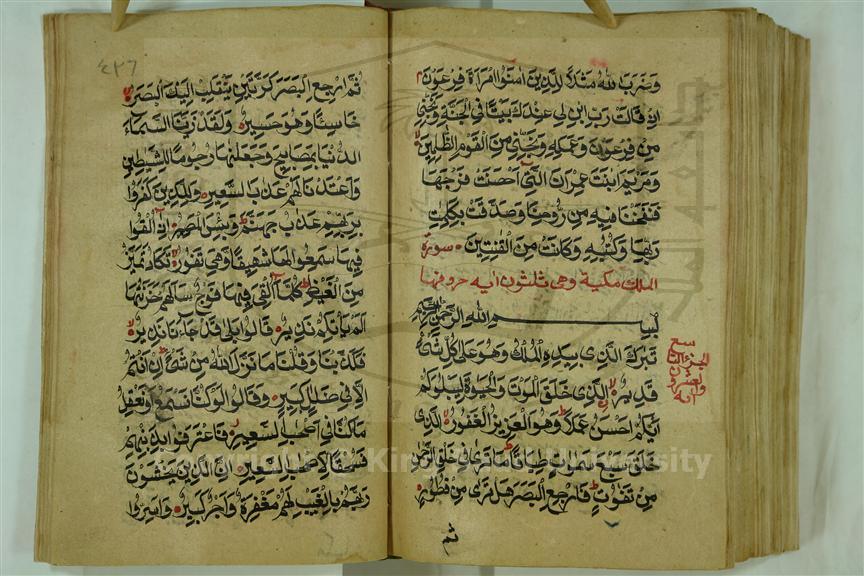 وضرب الله مثلا للذين امنوا امرأة فرعون
اذ قالت رب ابن لي عندك بيتا في الجنة ونجني
من فرعون وعمله ونجني من القوم الظلمين
ومريم ابنت عمران التي احصنت فرجها
فنفخنا فيه من روحنا وصدقت بكلمت
ربها وكتبه وكانت من القنتين سورة
الملك مكية وهي ثلثون ايه حروفها
بسم الله الرحمن الرحيم
تبرك الذي بيده الملك وهو على كل شئ
قدير الذي خلق الموت والحيوة ليبلوكم
ايكم احسن عملا وهو العزيز الغفور الذي
خلق سبع سموات طباقا ما ترى في خلق الرحمن
من تفوت فارجع البصر هل ترى من فطور
ثم
٤٢٦
ثم ارجع البصر كرتين ينقلب اليك البصر
خاسئا وهو حسير ولقد زينا السماء
الدنيا بمصابيح وجعلنها رجوما للشيطين
واعتدنا لهم عذاب السعير وللذين كفروا
بربهم عذاب جهنم وبئس المصير اذا القوا
فيها سمعوا لها شهيقا وهي تفور تكاد تميز
من الغيظ كلما القي فيها فوج سالهم خزنتها
الم ياتكم نذير قالوا بلى قد جاءنا نذير
فكذبنا وقلنا ما نزل الله من شئ ان انتم
الا في ضلل كبير وقالوا لو كنا نسمع او نعقل
ما كنا في اصحب السعير فاعترفوا بذنبهم
فسحقا لاصحب السعير ان الذين يخشون
ربهم بالغيب لهم مغفرة واجر كبير واسروا
Copyright © King Saud University